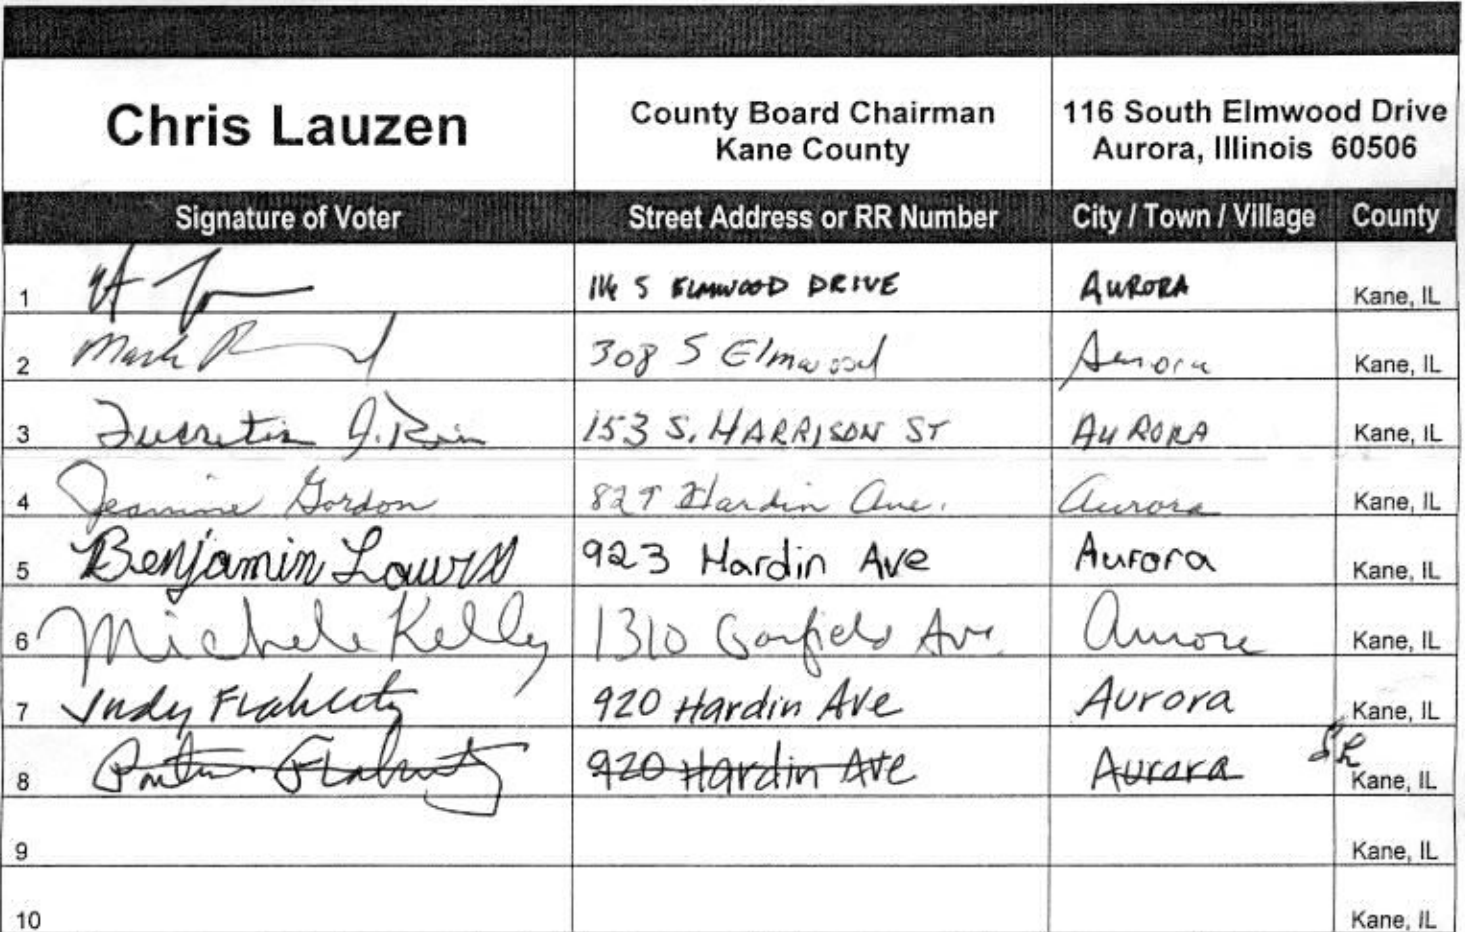 Chris Lauzen County Board Chairman 116 South Elmwood Drive
Kane County Aurora, Illinois 60506
Signature of Voter Street Address or RR Number City / Town / Village County
1 116 S ELMWOOD DRIVE AURORA Kane, IL
2 Mark 308 S Elmwood Aurora Kane, IL
3 Lucretia J. 153 S. HARRISON ST AURORA Kane, IL
4 Jeannine Gordon 829 Hardin Ave. Aurora Kane, IL
5 Benjamin 923 Hardin Ave Aurora Kane, IL
6 Michele Kelly 1310 Garfield Ave Aurora Kane, IL
7 Judy Flaherty 920 Hardin Ave Aurora Kane, IL
8 Flaherty 920 Hardin Ave Aurora Kane, IL
9 Kane, IL
10 Kane, IL